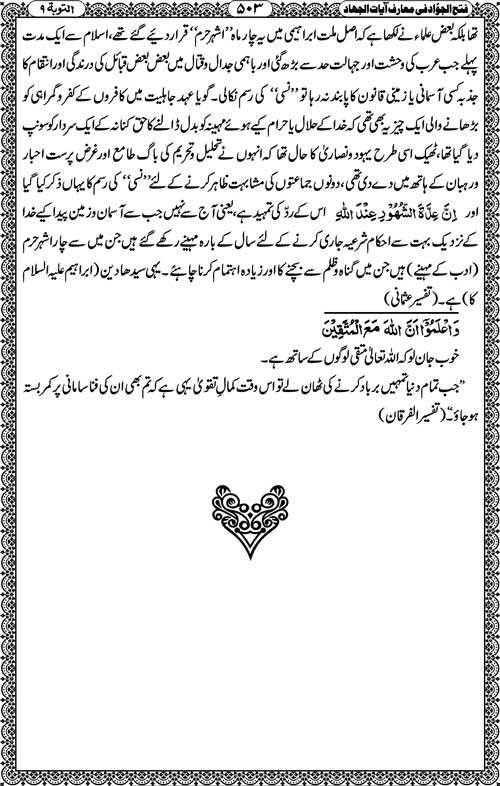 فتح الجوّاد فی معارف آیات الجھاد ۵۰۳ التوبۃ ۹
تھا بلکہ بعض علماء نے لکھا ہے کہ اصل ملت ابراہیمی میں یہ چار ماہ ’’اشہر حرم‘‘ قرار دیئے گئے تھے، اسلام سے ایک مدت
پہلے جب عرب کی وحشت اور جہالت حد سے بڑھ گئی اور باہمی جدال و قتال میں بعض بعض قبائل کی درندگی اور انتقام کا
جذبہ کسی آسمانی یا زمینی قانون کا پابند نہ رہا تو ’’نسیٔ‘‘ کی رسم نکالی۔ گویا عہد جاہلیت میں کافروں کے کفر و گمراہی کو
بڑھانے والی ایک چیز یہ بھی تھی کہ خدا کے حلال یا حرام کیے ہوئے مہینہ کو بدل ڈالنے کا حق کنانہ کے ایک سردار کو سونپ
دیا گیا تھا، ٹھیک اسی طرح یہود و نصاریٰ کا حال تھا کہ انہوں نے تحلیل و تحریم کی باگ طامع اور غرض پرست احبار
و رہبان کے ہاتھ میں دے دی تھی، دونوں جماعتوں کی مشابہت ظاہر کرنے کے لئے ’’نسیٔ‘‘ کی رسم کا یہاں ذکر کیا گیا
اور اِنَّ عِدَّۃَ الشُّھُوْرِ عِنْدَ اللّٰہِ اس کے ردّ کی تمہید ہے، یعنی آج سے نہیں جب سے آسمان و زمین پیدا کیے خدا
کے نزدیک بہت سے احکام شرعیہ جاری کرنے کے لئے سال کے بارہ مہینے رکھے گئے ہیں جن میں سے چار اشہر حرم
(ادب کے مہینے) ہیں جن میں گناہ و ظلم سے بچنے کا اور زیادہ اہتمام کرنا چاہئے۔ یہی سیدھا دین (ابراہیم علیہ السلام
کا) ہے۔ (تفسیر عثمانی)
وَاعْلَمُوْٓا اَنَّ اللّٰہَ مَعَ الْمُتَّقِیْنَ
خوب جان لو کہ اللہ تعالیٰ متقی لوگوں کے ساتھ ہے۔
’’جب تمام دنیا تمہیں برباد کرنے کی ٹھان لے تو اس وقت کمالِ تقویٰ یہی ہے کہ تم بھی ان کی فنا سامانی پر کمر بستہ
ہو جاؤ‘‘ (تفسیر الفرقان)